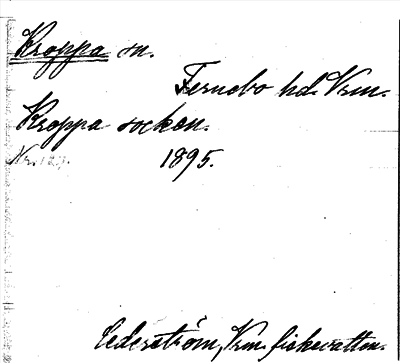 Kroppa sn.
Fernebo hd. Vrm.
Kroppa socken.
1895.
Cederström, Vrm. fiskevatten.